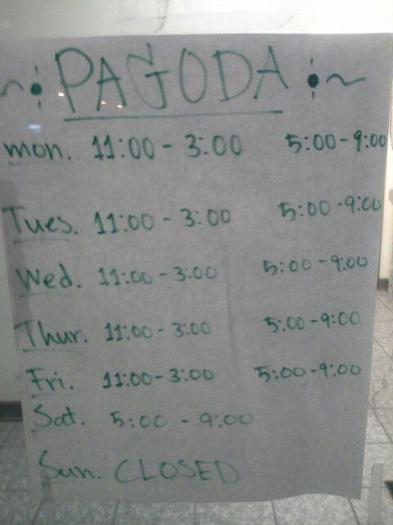 ~ PAGODA ~
mon. 11:00 - 3:00 5:00 - 9:00
Tues. 11:00 - 3:00 5:00 - 9:00
Wed. 11:00 - 3:00 5:00 - 9:00
Thur. 11:00 - 3:00 5:00 - 9:00
Fri. 11:00 - 3:00 5:00 - 9:00
Sat. 5:00 - 9:00
Sun. CLOSED